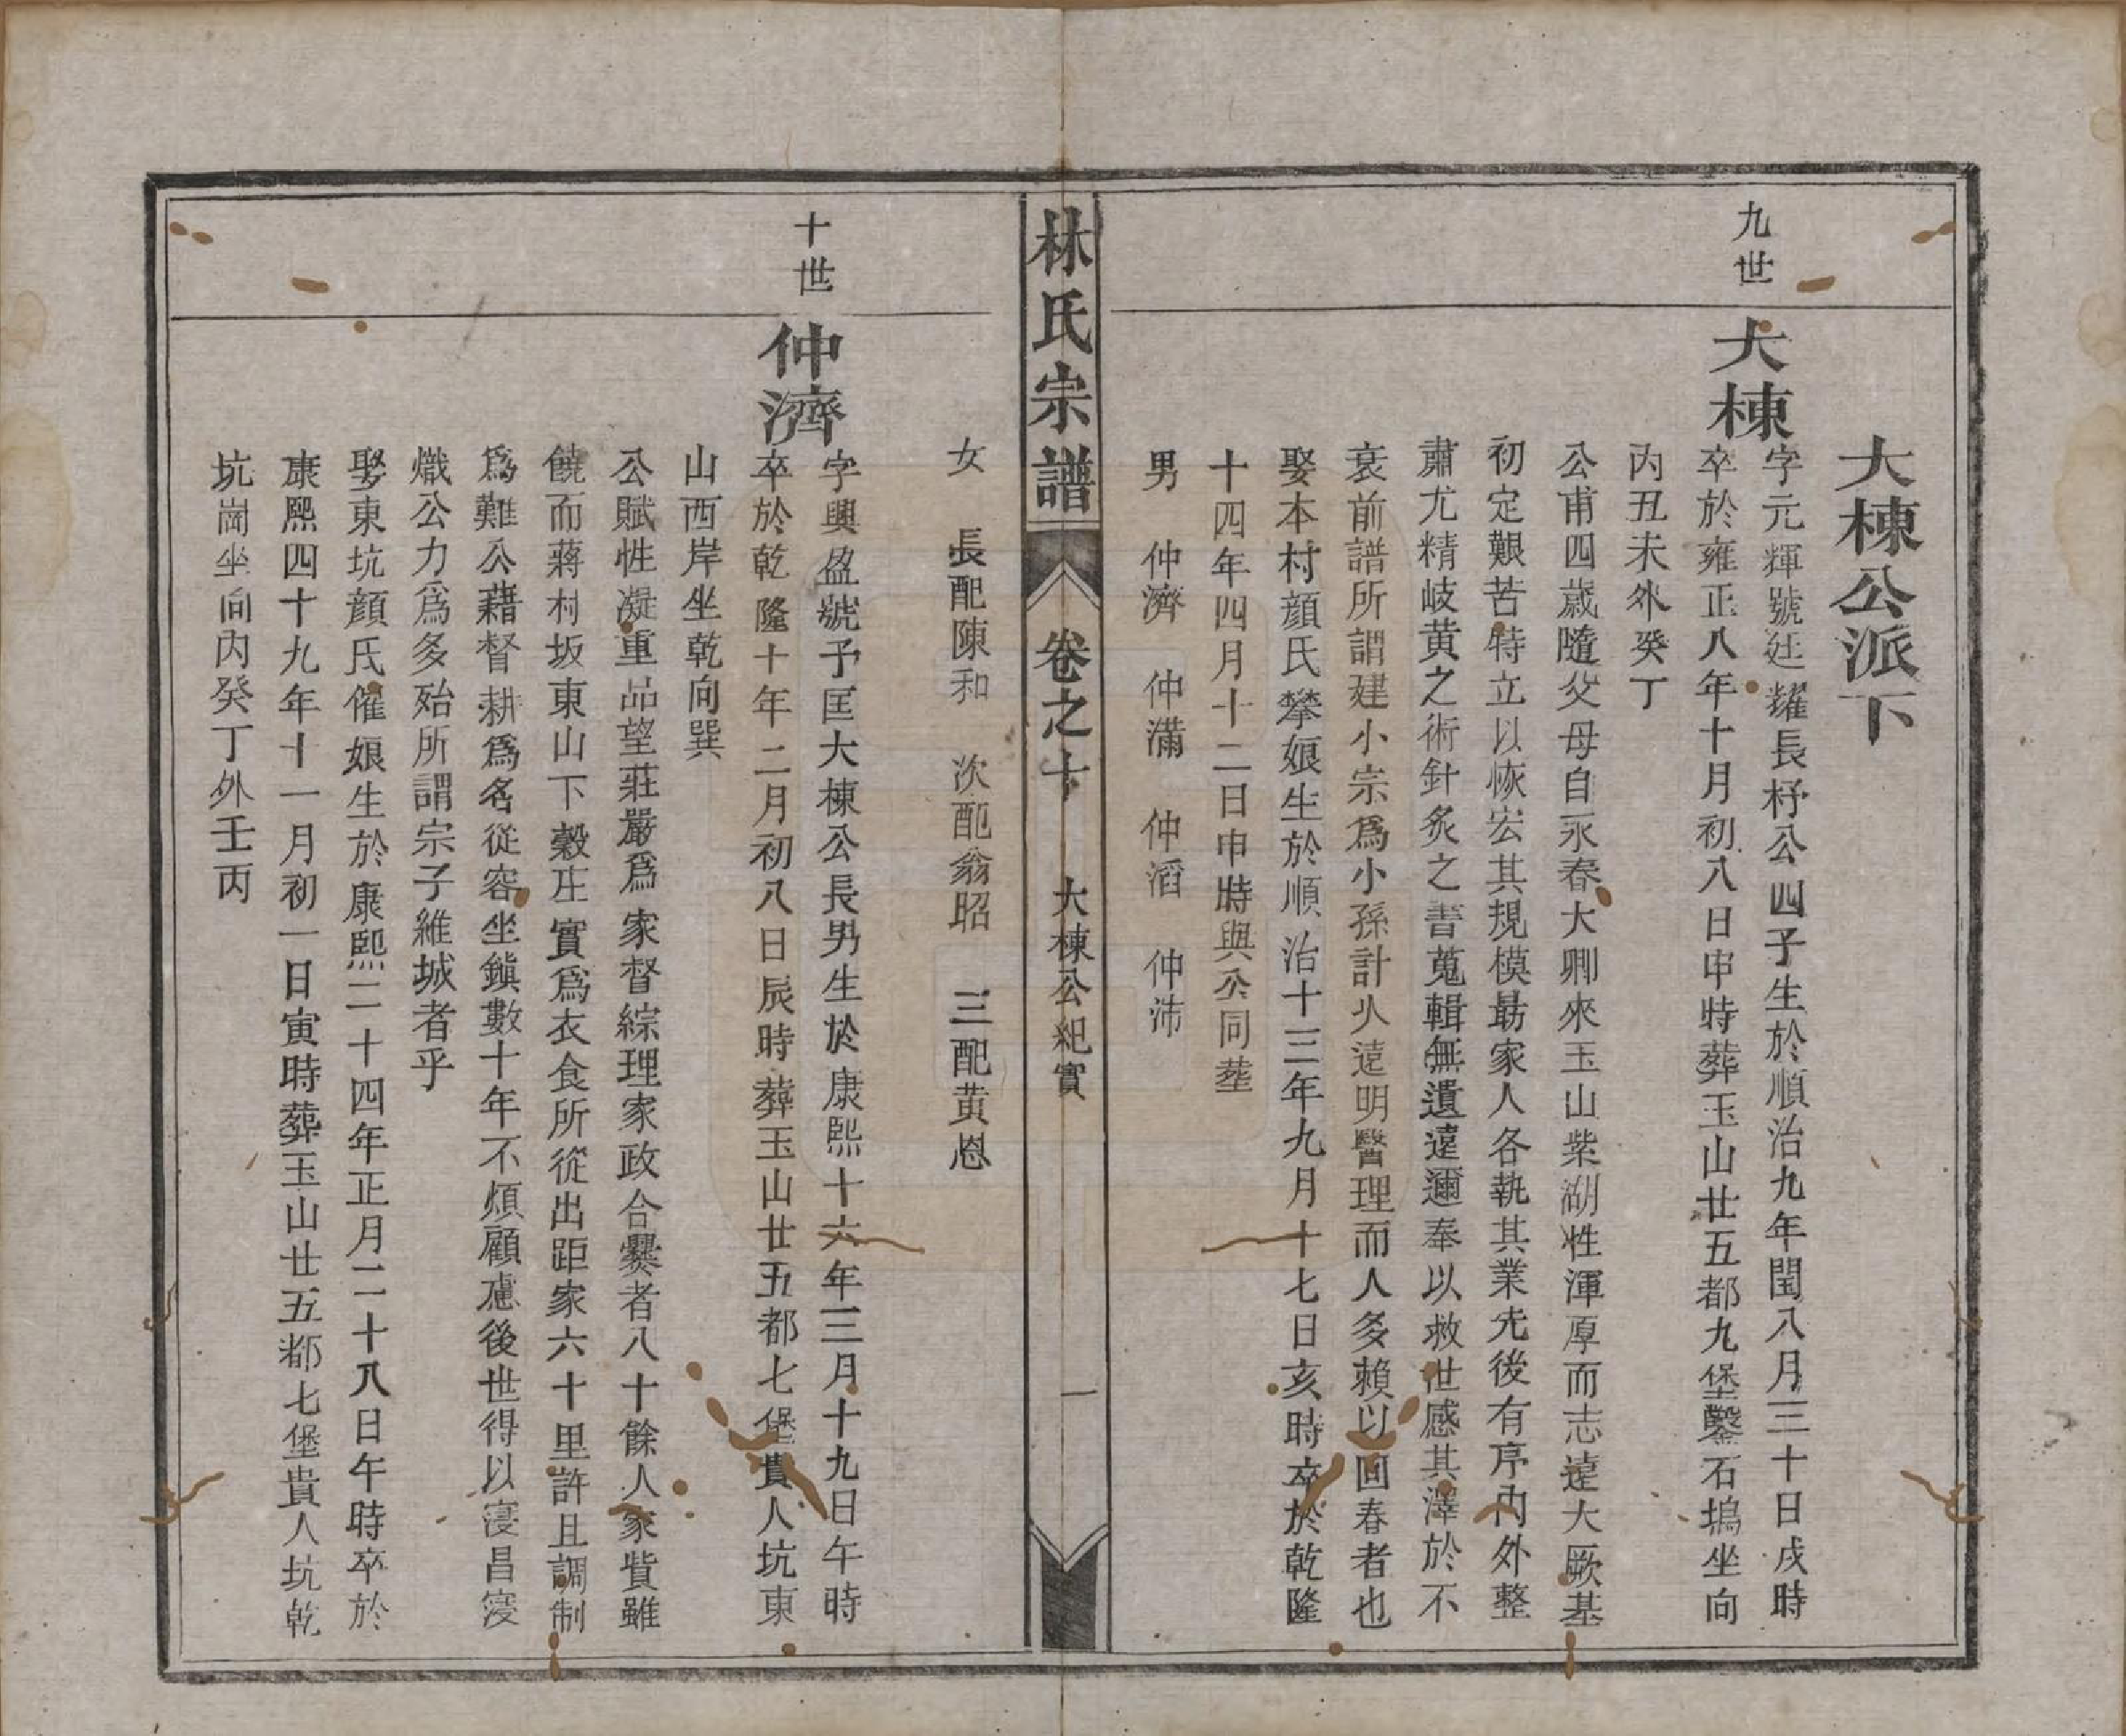 大棟公派下
九世
大棟
字元輝號廷耀長杼公四子生於順治九年閏八月三十日戌時
卒於雍正八年十月初八日申時葬玉山廿五都九堡鑿石塢坐向
內丑未外癸丁
公甫四歲隨父母自永春大卿來玉山紫湖性渾厚而志遠大厥基
初定艱苦特立以恢宏其規模最家人各執其業先後有序內外整
肅尤精岐黃之術針炙之書蒐輯無遺遠邇奉以救世感其澤於不
衰前譜所謂建小宗爲小孫計乆遠明醫理而人多賴以回春者也
娶本村顔氏攀娘生於順治十三年九月十七日亥時卒於乾隆
十四年四月十二日申時與公同塟
男 仲濟 仲滿 仲滔 仲沛
林氏宗譜
卷之十
大棟公紀實
一
女 長配陳和 次配翁昭 三配黃恩
十世
仲濟
字興盈號予匡大棟公長男生於康熙十六年三月十九日午時
卒於乾隆十年二月初八日辰時葬玉山廿五都七堡貴人坑東
山西岸坐乾向巽
公賦性凝重品望莊嚴爲家督綜理家政合爨者八十餘人家貲雖
饒而蔣村坂東山下穀庄實爲衣食所從出距家六十里許且調制
爲難公藉督耕爲名從容坐鎭數十年不煩顧慮後世得以寖昌寖
熾公力爲多殆所謂宗子維城者乎
娶東坑顔氏催娘生於康熙二十四年正月二十八日午時卒於
康熙四十九年十一月初一日寅時葬玉山廿五都七堡貴人坑乾
坑崗坐向內癸丁外壬丙